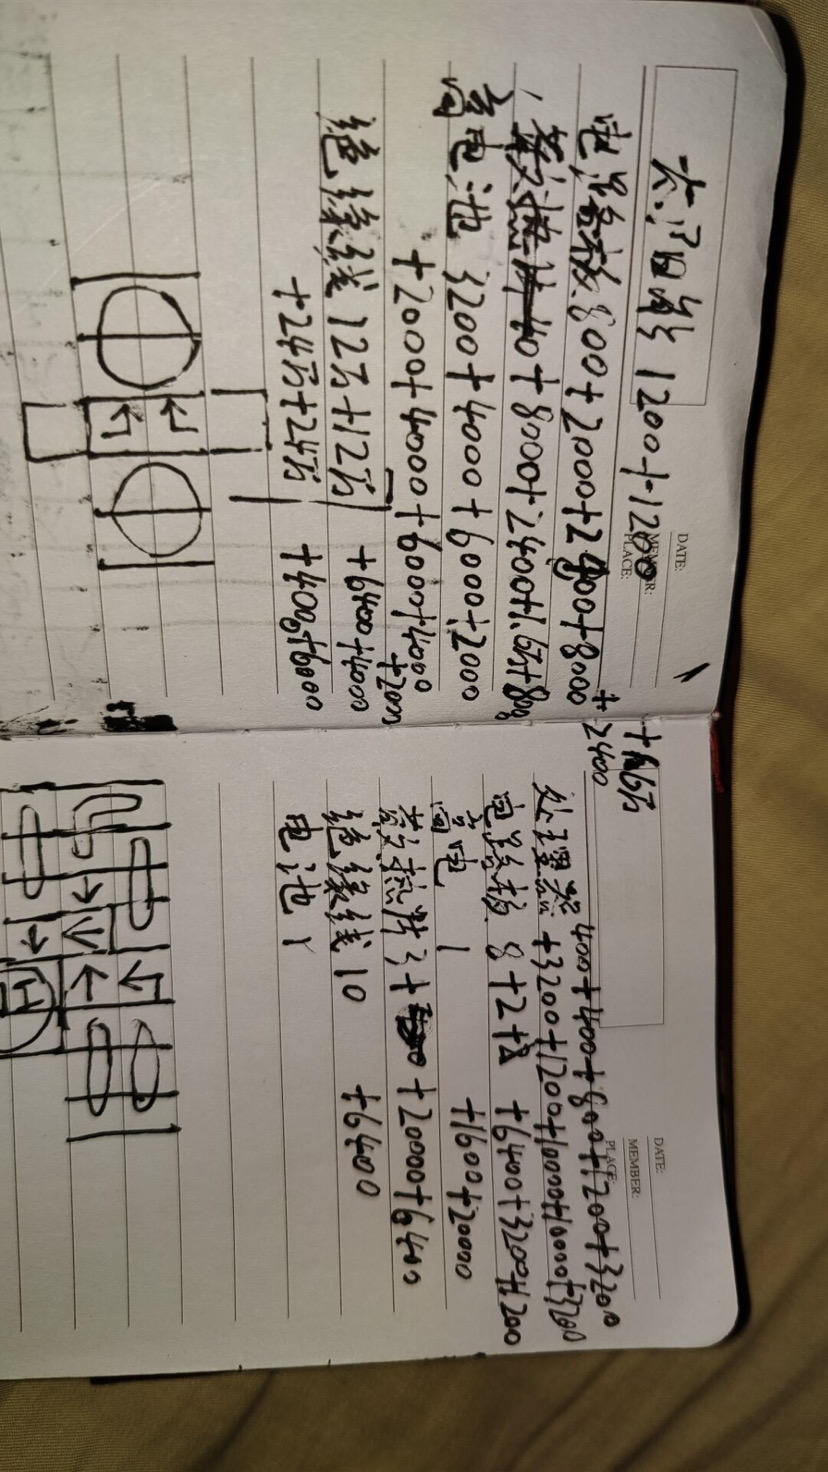 DATE:
MEMBER:
PLACE:
太阳能 1200+1200
电路板 800+2000+2400+8000+2400
+1.6万
散热片 40+8000+2400+1.6万+800
高电池 3200+4000+6000+2000
+2000+4000+6000+4000+2000
绝缘线 12万+12万 +6400+4000
+24万+24万 +4000+6000
DATE:
MEMBER:
PLACE:
处理器 400+400+800+1200+3200
+3200+1200+10000+10000+3200
电路板 8+2+2 +6400+3200+1200
高电 1 +1600+20000
散热片 3+ +20000+6400
绝缘线 10 +6400
电池 1